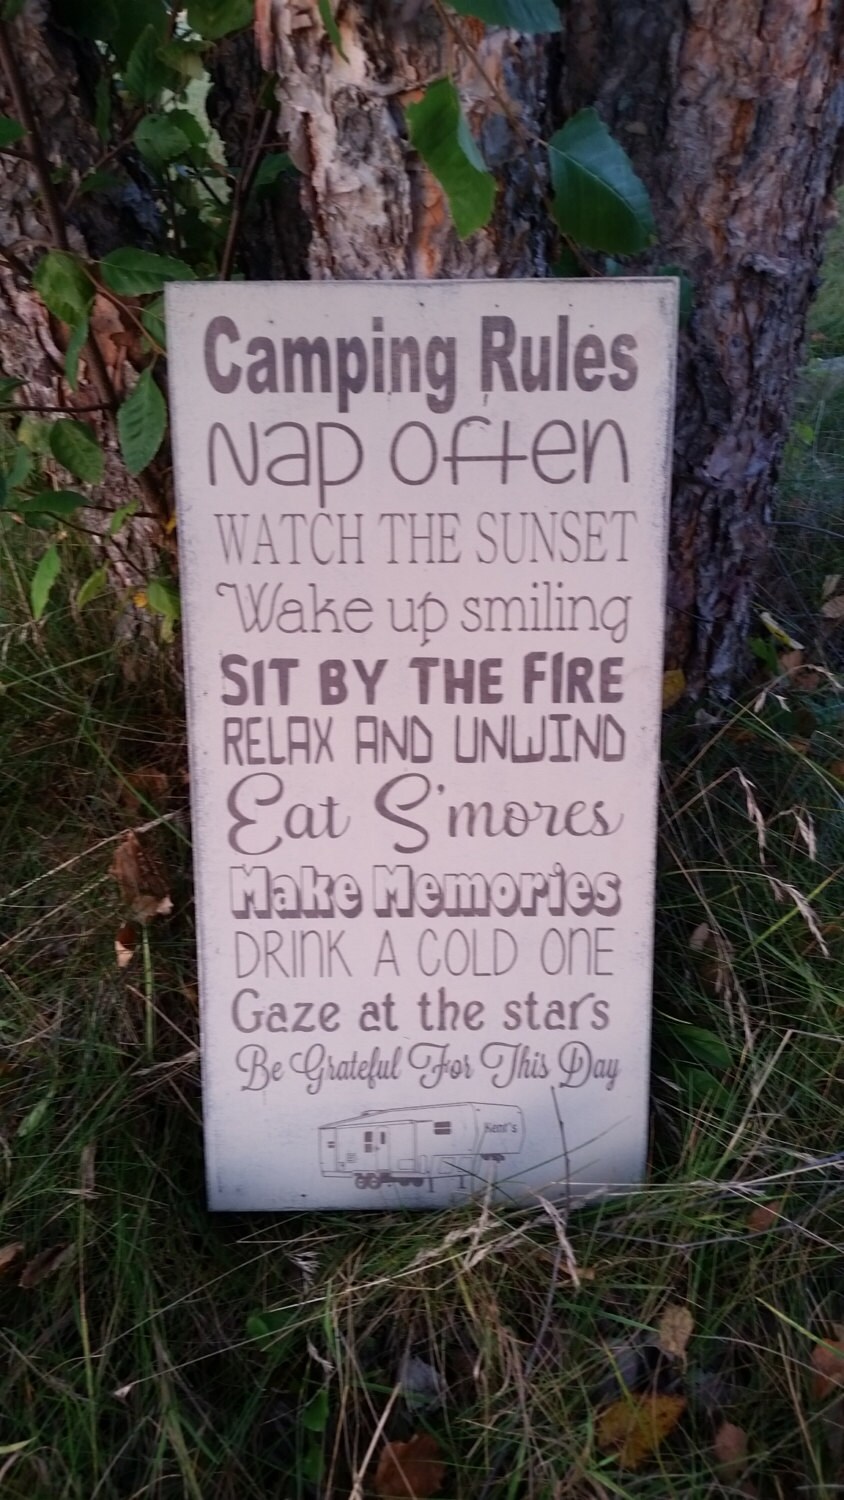 Camping Rules
Nap often
WATCH THE SUNSET
Wake up smiling
SIT BY THE FIRE
RELAX AND UNWIND
Eat S'mores
Make Memories
DRINK A COLD ONE
Gaze at the stars
Be Grateful For This Day
Kent's